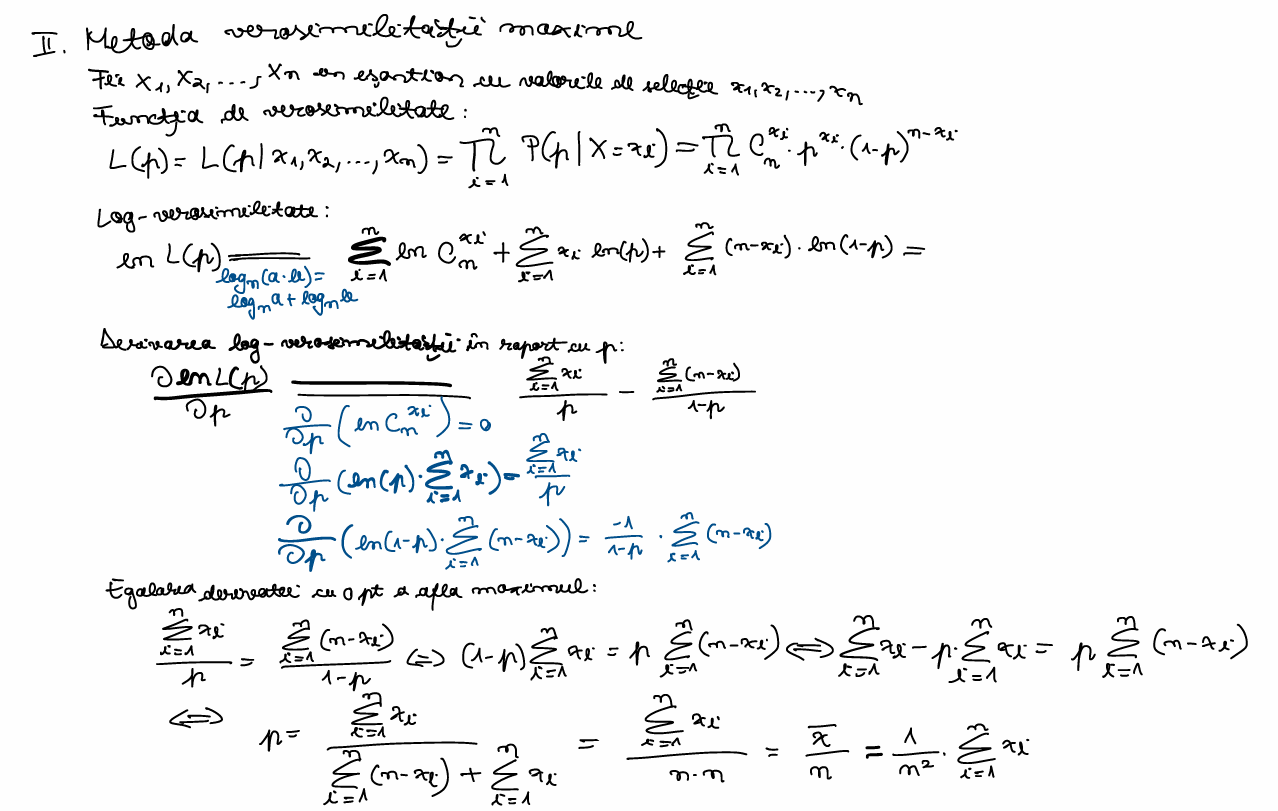 II. Metoda verosimilității maxime
Fie X₁, X₂, ..., Xₙ un eșantion cu valorile de selecție x₁, x₂, ..., xₙ
Funcția de verosimilitate:
L(p) = L(p | x₁, x₂, ..., xₙ) = ∏_{i=1}^{n} P(p | X = xᵢ) = ∏_{i=1}^{n} C_n^{xᵢ} · p^{xᵢ} · (1-p)^{n-xᵢ}
Log-verosimilitate:
ln L(p) = ∑_{i=1}^{n} ln C_n^{xᵢ} + ∑_{i=1}^{n} xᵢ ln(p) + ∑_{i=1}^{n} (n-xᵢ) · ln(1-p) =
logₙ(a·b) =
logₙ a + logₙ b
Derivarea log-verosimilității în raport cu p:
∂ ln L(p) / ∂p = (∑_{i=1}^{n} xᵢ) / p - (∑_{i=1}^{n} (n-xᵢ)) / (1-p)
∂/∂p (ln C_n^{xᵢ}) = 0
∂/∂p (ln(p) · ∑_{i=1}^{n} xᵢ) = (∑_{i=1}^{n} xᵢ) / p
∂/∂p (ln(1-p) · ∑_{i=1}^{n} (n-xᵢ)) = -1/(1-p) · ∑_{i=1}^{n} (n-xᵢ)
Egalarea derivatei cu 0 pt a afla maximul:
(∑_{i=1}^{n} xᵢ) / p = (∑_{i=1}^{n} (n-xᵢ)) / (1-p) ⇔ (1-p) ∑_{i=1}^{n} xᵢ = p ∑_{i=1}^{n} (n-xᵢ) ⇔ ∑_{i=1}^{n} xᵢ - p · ∑_{i=1}^{n} xᵢ = p ∑_{i=1}^{n} (n-xᵢ)
⇔ p = (∑_{i=1}^{n} xᵢ) / (∑_{i=1}^{n} (n-xᵢ) + ∑_{i=1}^{n} xᵢ) = (∑_{i=1}^{n} xᵢ) / (n·n) = x̄/n = 1/n² · ∑_{i=1}^{n} xᵢ